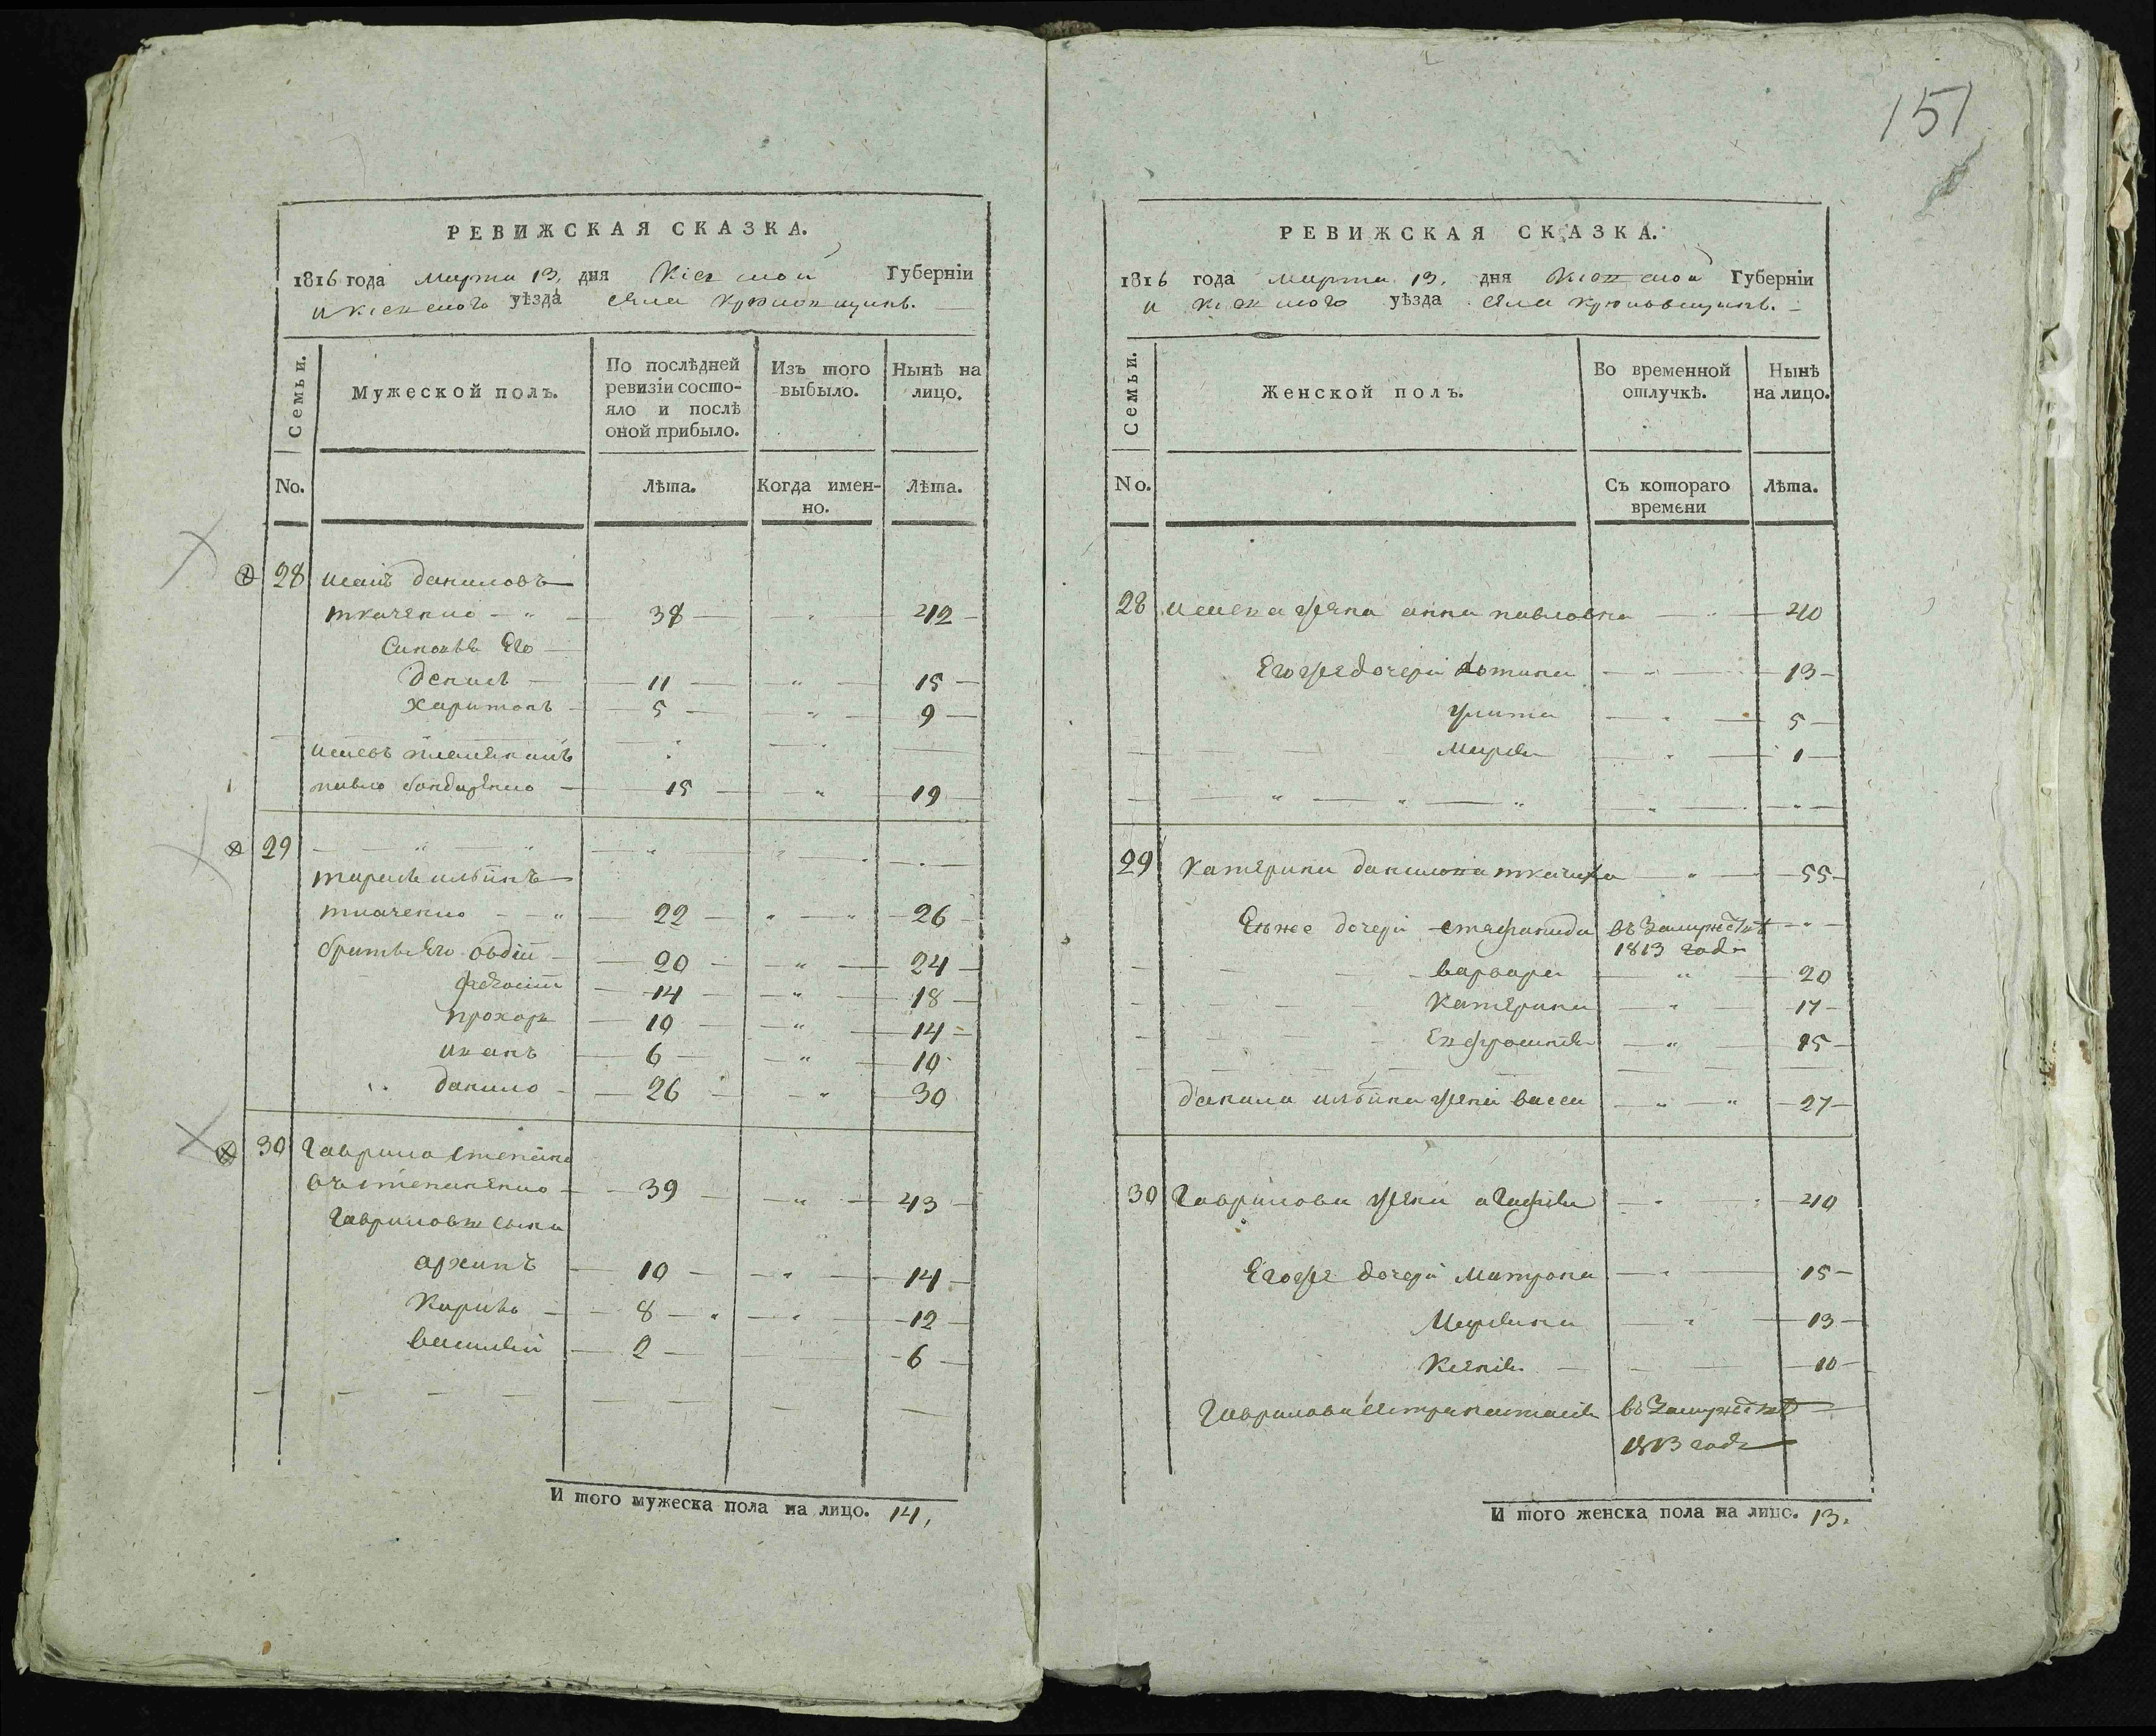 151
РЕВИЖСКАЯ СКАЗКА.
1816 года марта 13, дня Кіевской Губерніи
и кіевского уѣзда села Крюковщинъ.
Семьи.
Мужеской полъ.
По послѣдней ревизіи состояло и послѣ оной прибыло.
Изъ того выбыло.
Нынѣ на лицо.
No.
Лѣта.
Когда именно.
Лѣта.
28 исай даниловъ
ткаченко 38 42
Синовья Его
денисъ 11 15
харитонъ 5 9
исаевъ племеникъ
павло бондаренко 15 19
29
тарасъ ильинъ
ткаченко 22 26
братья Его овдій 20 24
14 18
прохоръ 10 14
иванъ 6 10
данило 26 30
30 Гаврило степано
въ степаненко 39 43
Гавриловы сына
архипъ 10 14
Карпъ 8 12
василій 2 6
И того мужеска пола на лицо. 14,
РЕВИЖСКАЯ СКАЗКА.
1816 года марта 13. дня Кіевской Губерніи
и Кіевского уѣзда села Крюковщинъ.
Семьи.
Женской полъ.
Во временной отлучкѣ.
Нынѣ на лицо.
No.
Съ котораго времени
Лѣта.
28 исаева жена анна павловна 40
Его же дочери 13
улита 5
Марья 1
29 Катерина данилова ткачиха 55
Ея же дочери стефанида въ Замужествѣ
1813 года
варвара 20
Катерина 17
Евфросинія 15
данила ильина жена васса 27
30 Гаврилова жена агафія 40
Его же дочери Матрона 15
Марьяна 13
Ксенія 10
Гаврилова сестра настасія въ Замужествѣ
1813 года
И того женска пола на лицо. 13.